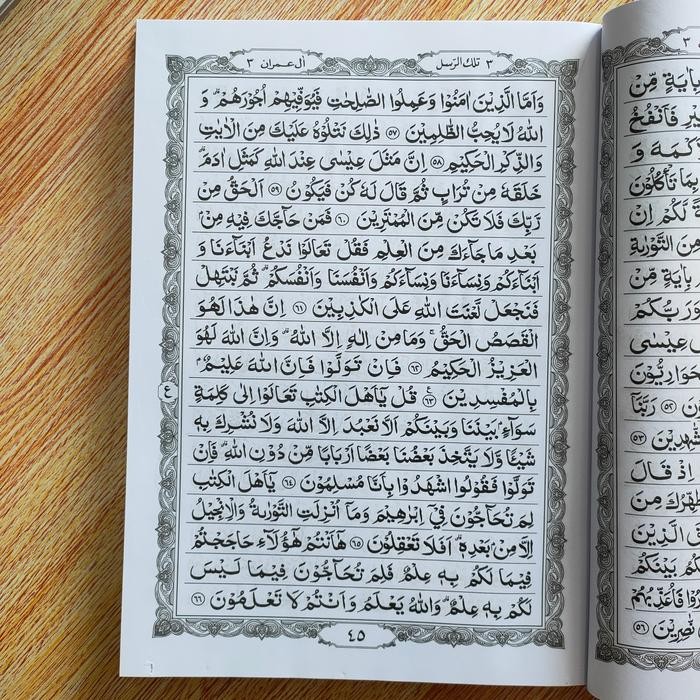 ٣ تلك الرسل
ال عمران ٣
وَاَمَّا الَّذِيْنَ اٰمَنُوْا وَعَمِلُوا الصّٰلِحٰتِ فَيُوَفِّيْهِمْ اُجُوْرَهُمْ ۗ وَ
اللّٰهُ لَا يُحِبُّ الظّٰلِمِيْنَ ٥٧ ذٰلِكَ نَتْلُوْهُ عَلَيْكَ مِنَ الْاٰيٰتِ
وَالذِّكْرِ الْحَكِيْمِ ٥٨ اِنَّ مَثَلَ عِيْسٰى عِنْدَ اللّٰهِ كَمَثَلِ اٰدَمَ ۗ
خَلَقَهٗ مِنْ تُرَابٍ ثُمَّ قَالَ لَهٗ كُنْ فَيَكُوْنُ ٥٩ اَلْحَقُّ مِنْ
رَّبِّكَ فَلَا تَكُنْ مِّنَ الْمُمْتَرِيْنَ ٦٠ فَمَنْ حَاۤجَّكَ فِيْهِ مِنْۢ
بَعْدِ مَا جَاۤءَكَ مِنَ الْعِلْمِ فَقُلْ تَعَالَوْا نَدْعُ اَبْنَاۤءَنَا وَ
اَبْنَاۤءَكُمْ وَنِسَاۤءَنَا وَنِسَاۤءَكُمْ وَاَنْفُسَنَا وَاَنْفُسَكُمْ ۗ ثُمَّ نَبْتَهِلْ
فَنَجْعَلْ لَّعْنَتَ اللّٰهِ عَلَى الْكٰذِبِيْنَ ٦١ اِنَّ هٰذَا لَهُوَ
الْقَصَصُ الْحَقُّ ۚ وَمَا مِنْ اِلٰهٍ اِلَّا اللّٰهُ ۗ وَاِنَّ اللّٰهَ لَهُوَ
الْعَزِيْزُ الْحَكِيْمُ ٦٢ فَاِنْ تَوَلَّوْا فَاِنَّ اللّٰهَ عَلِيْمٌۢ
بِالْمُفْسِدِيْنَ ٦٣ قُلْ يٰٓاَهْلَ الْكِتٰبِ تَعَالَوْا اِلٰى كَلِمَةٍ
ع
سَوَاۤءٍۢ بَيْنَنَا وَبَيْنَكُمْ اَلَّا نَعْبُدَ اِلَّا اللّٰهَ وَلَا نُشْرِكَ بِهٖ
شَيْـًٔا وَّلَا يَتَّخِذَ بَعْضُنَا بَعْضًا اَرْبَابًا مِّنْ دُوْنِ اللّٰهِ ۗ فَاِنْ
تَوَلَّوْا فَقُوْلُوا اشْهَدُوْا بِاَنَّا مُسْلِمُوْنَ ٦٤ يٰٓاَهْلَ الْكِتٰبِ
لِمَ تُحَاۤجُّوْنَ فِيْٓ اِبْرٰهِيْمَ وَمَآ اُنْزِلَتِ التَّوْرٰىةُ وَالْاِنْجِيْلُ
اِلَّا مِنْۢ بَعْدِهٖ ۗ اَفَلَا تَعْقِلُوْنَ ٦٥ هٰٓاَنْتُمْ هٰٓؤُلَاۤءِ حَاجَجْتُمْ
فِيْمَا لَكُمْ بِهٖ عِلْمٌ فَلِمَ تُحَاۤجُّوْنَ فِيْمَا لَيْسَ
لَكُمْ بِهٖ عِلْمٌ ۗ وَاللّٰهُ يَعْلَمُ وَاَنْتُمْ لَا تَعْلَمُوْنَ ٦٦
٤٥
٣
بِاٰيَةٍ مِّنْ
فَاَنْفُخُ
وَ
بِمَا تَأْكُلُوْنَ
لَّكُمْ اِنْ
مِنَ التَّوْرٰىةِ
بِاٰيَةٍ مِّنْ
وَرَبُّكُمْ
عِيْسٰى
٥٢ رَبَّنَآ
٥٣
اِذْ قَالَ
مِنَ
الَّذِيْنَ
بَيْنَكُمْ
نّٰصِرِيْنَ ٥٦